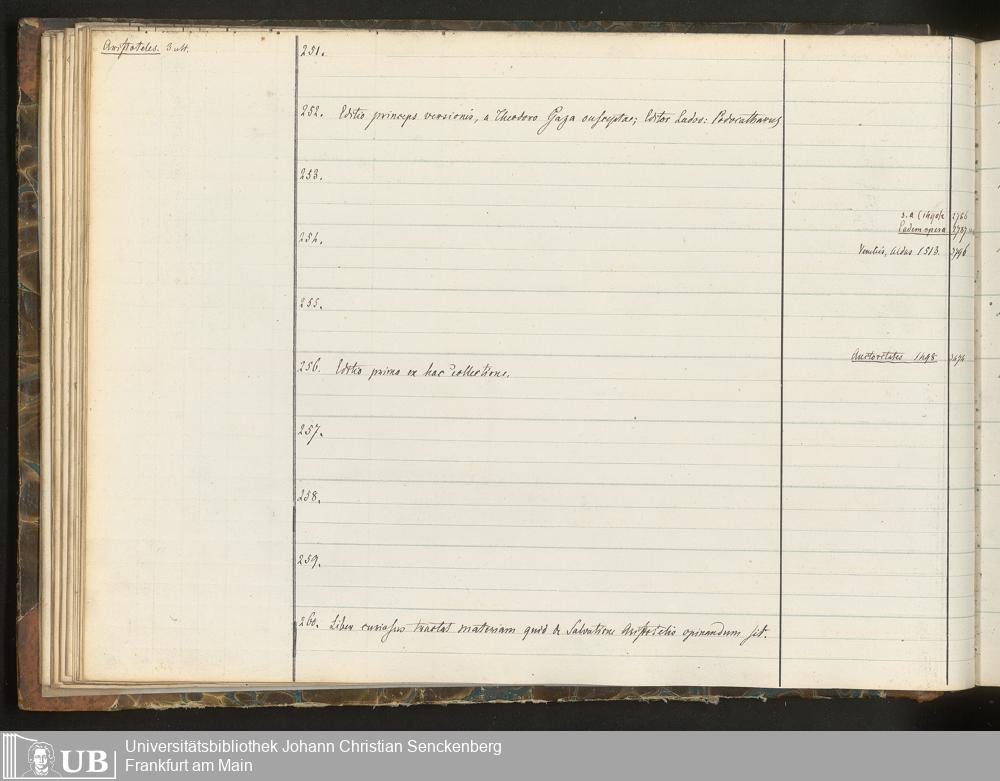 Aristoteles. 3 ult.
251.
252. Editio princeps versionis, a Theodoro Gaza susceptae; Editor Ludov: Podocatharus
253.
s. a (1490)
Eadem opera
254.
Venetiis, Aldus 1513. 2796
255.
Auctoritates 1498
256. Editio prima ex hac collectione.
257.
258.
259.
260. Liber curiosus tractat materiam quid de Salvatione Aristotelis opinandum sit.
UB
Universitätsbibliothek Johann Christian Senckenberg
Frankfurt am Main